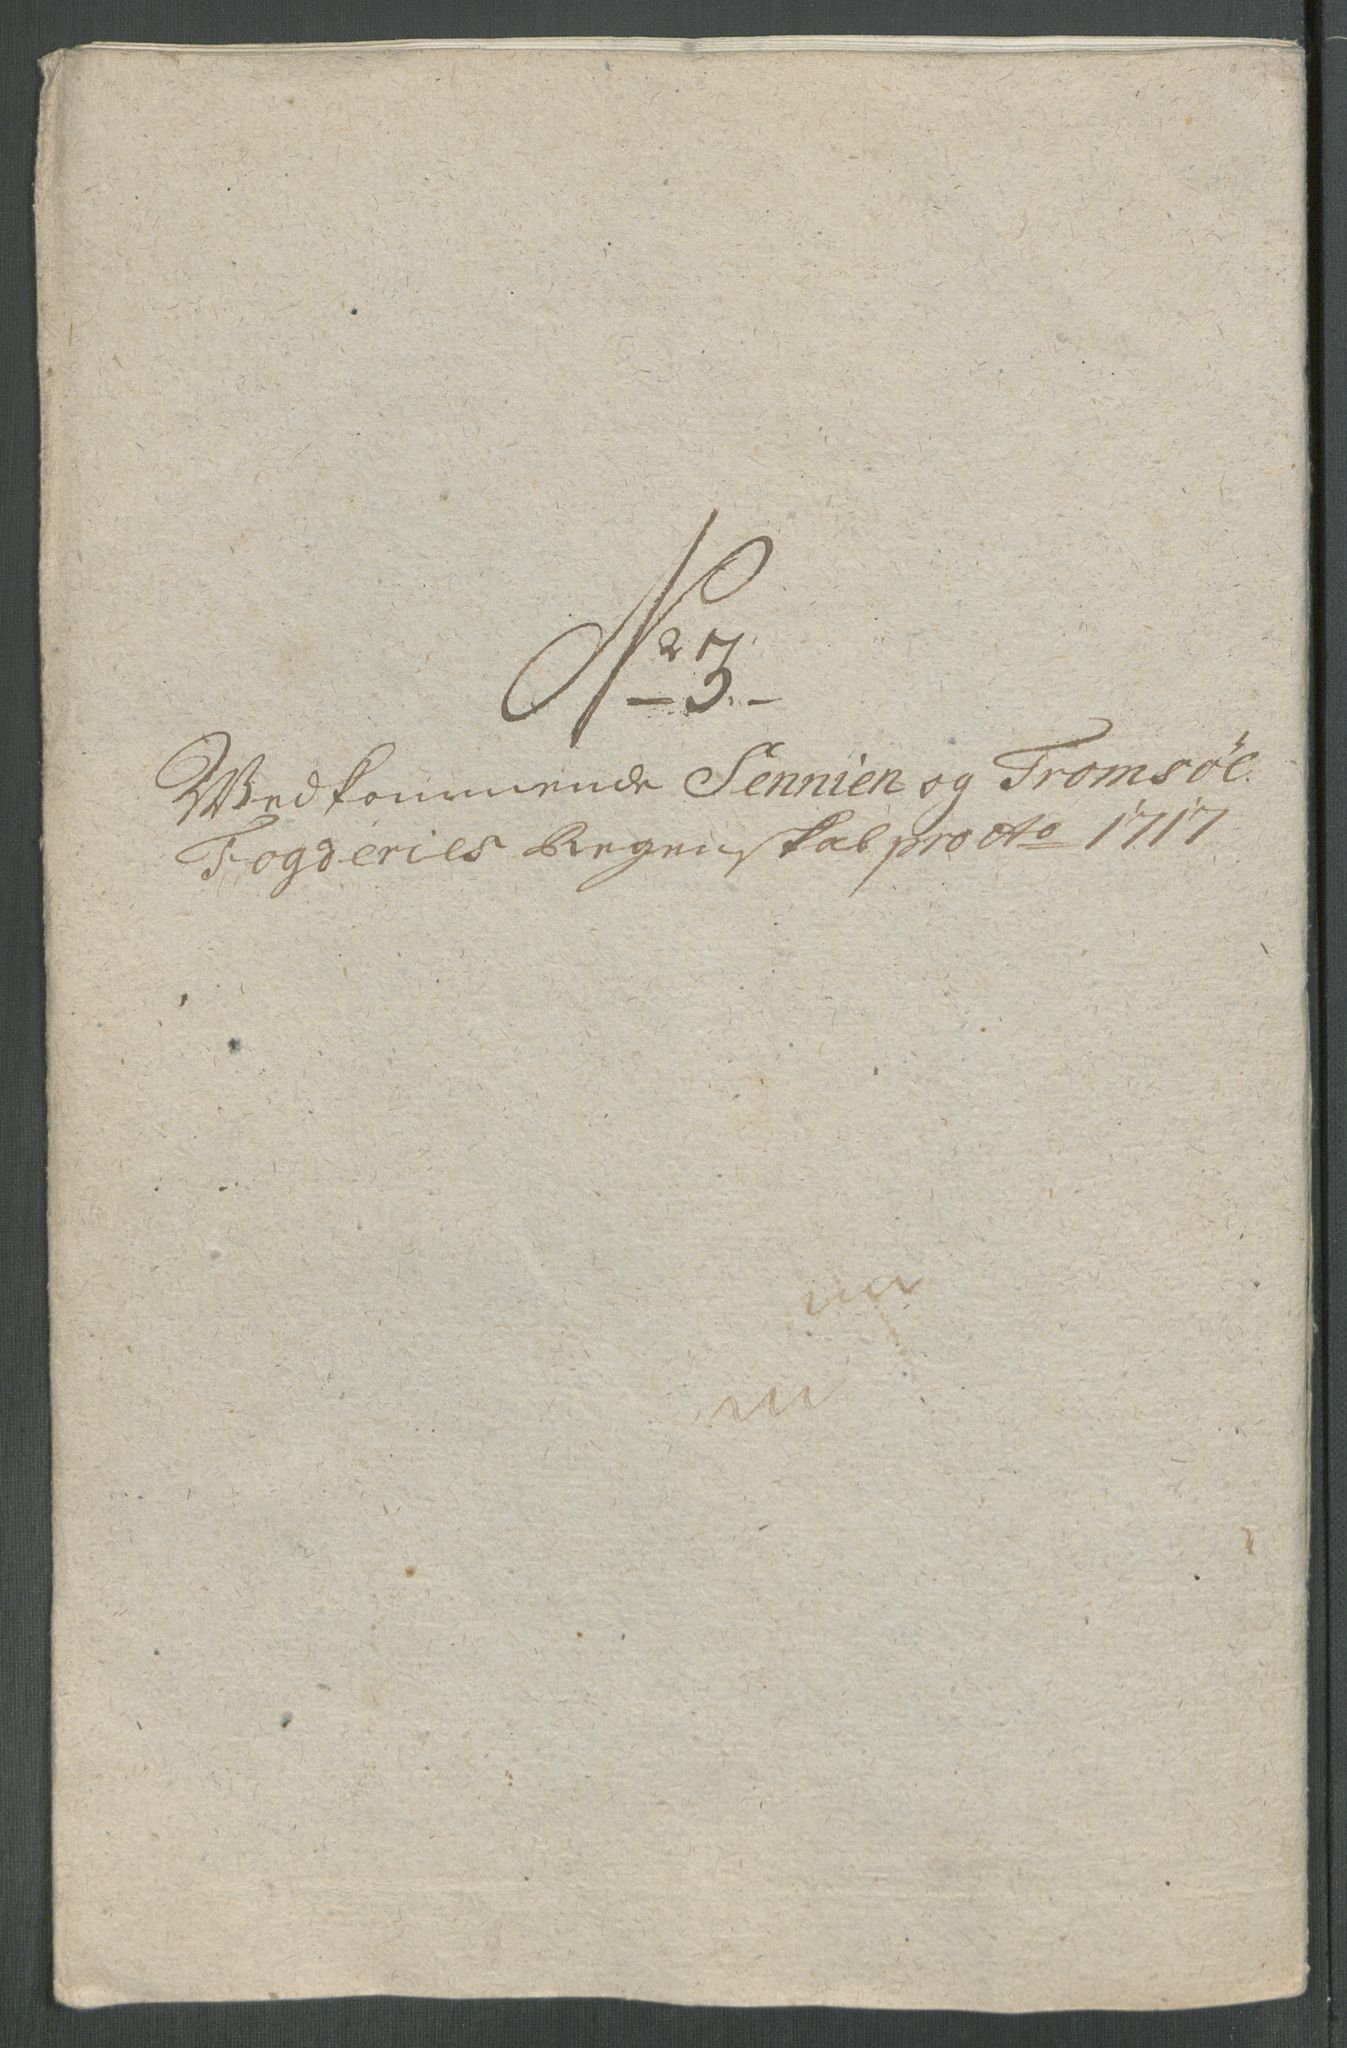 No 3.
Wedkommende Sennien og Tromsöe
Fogderies Regenskab pro Ao 1717